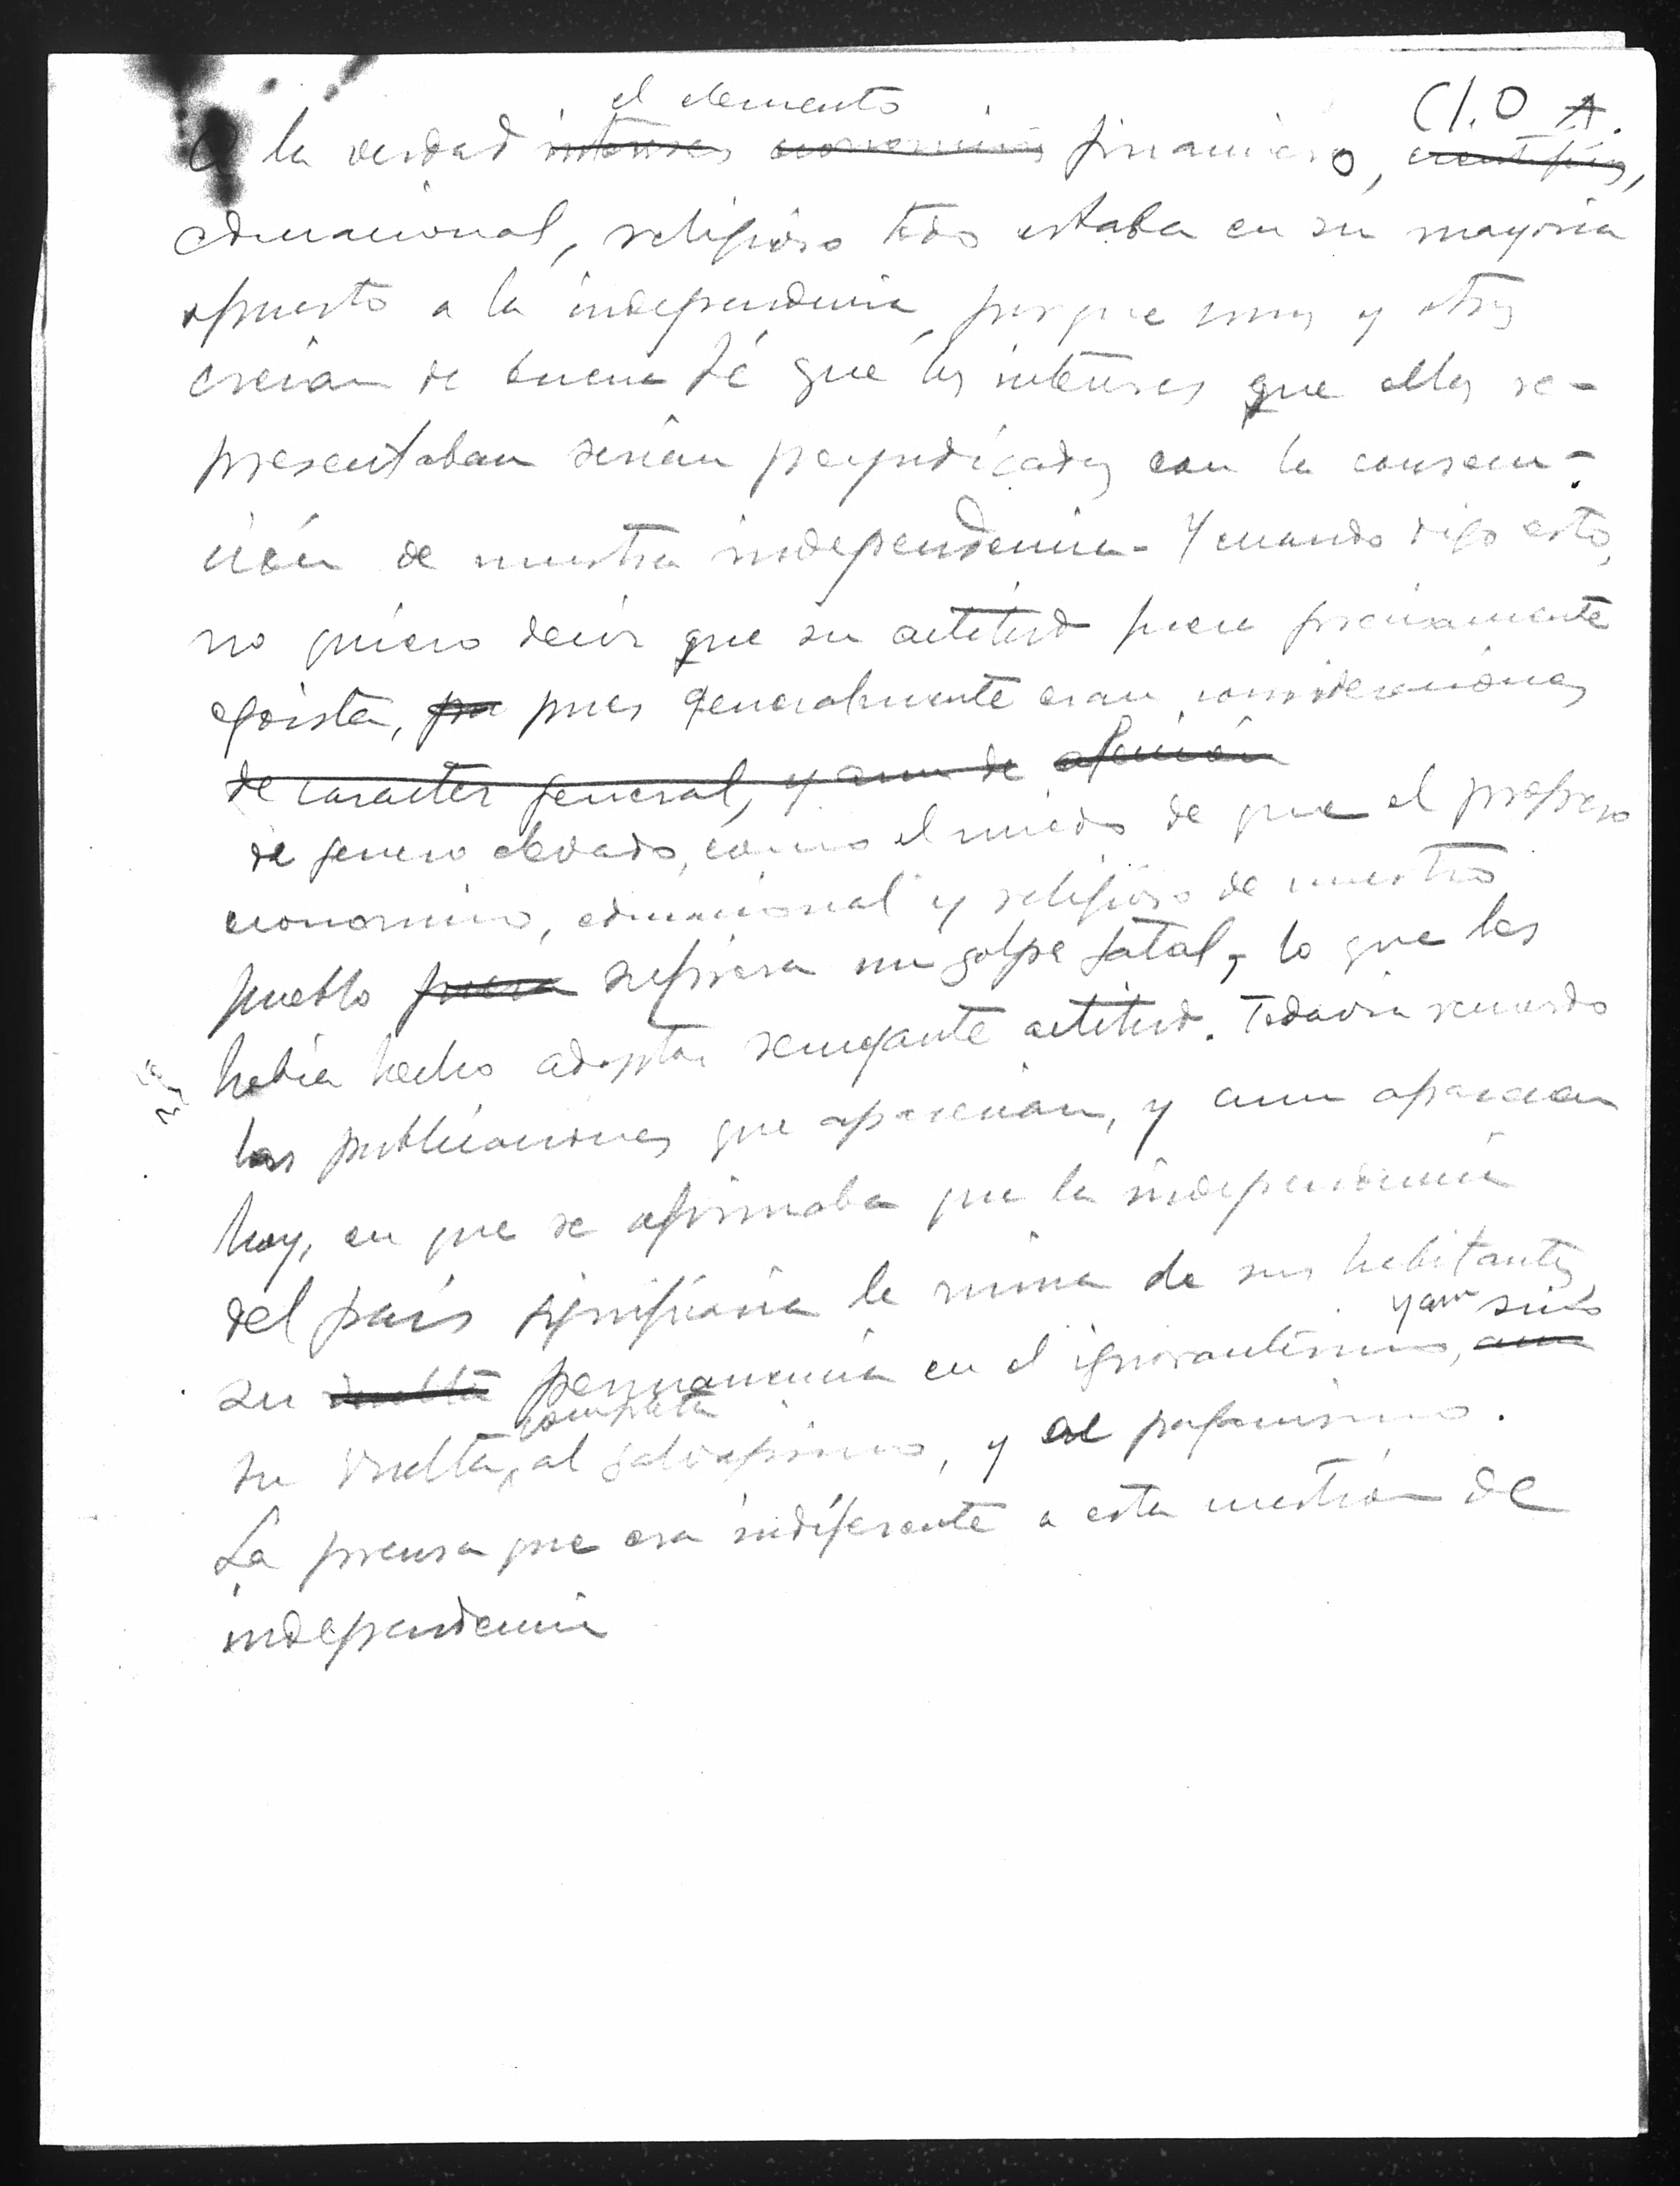 C/.O A.
el elemento
A la verdad intereses economicos financiero, cientifico,
educacional, religioso todo estaba en su mayoria
opuesto a la independencia, porque unos y otros
creian de buena fé que los intereses que ellos re-
presentaban serian perjudicados con la consecu-
ción de nuestra independencia. Y cuando digo esto,
no quiero decir que su actitud fuera precisamente
egoista, por pues generalmente eran consideraciones
de caracter general, y aun de
de genero elevado, como el miedo de que el progreso
economico, educacional y religioso de nuestro
pueblo fuera sufriera un golpe fatal, lo que les
habia hecho adoptar semejante actitud. Todavia recuerdo
las publicaciones que aparecian, y aun aparecen
hoy, en que se afirmaba que la independencia
del pais significaria la ruina de sus habitantes,
y aun sino
su vuelta permanencia en el ignorantismo, aun
completa
su vuelta al salvajismo, y al paganismo.
La prensa que era indiferente a esta cuestión de
independencia